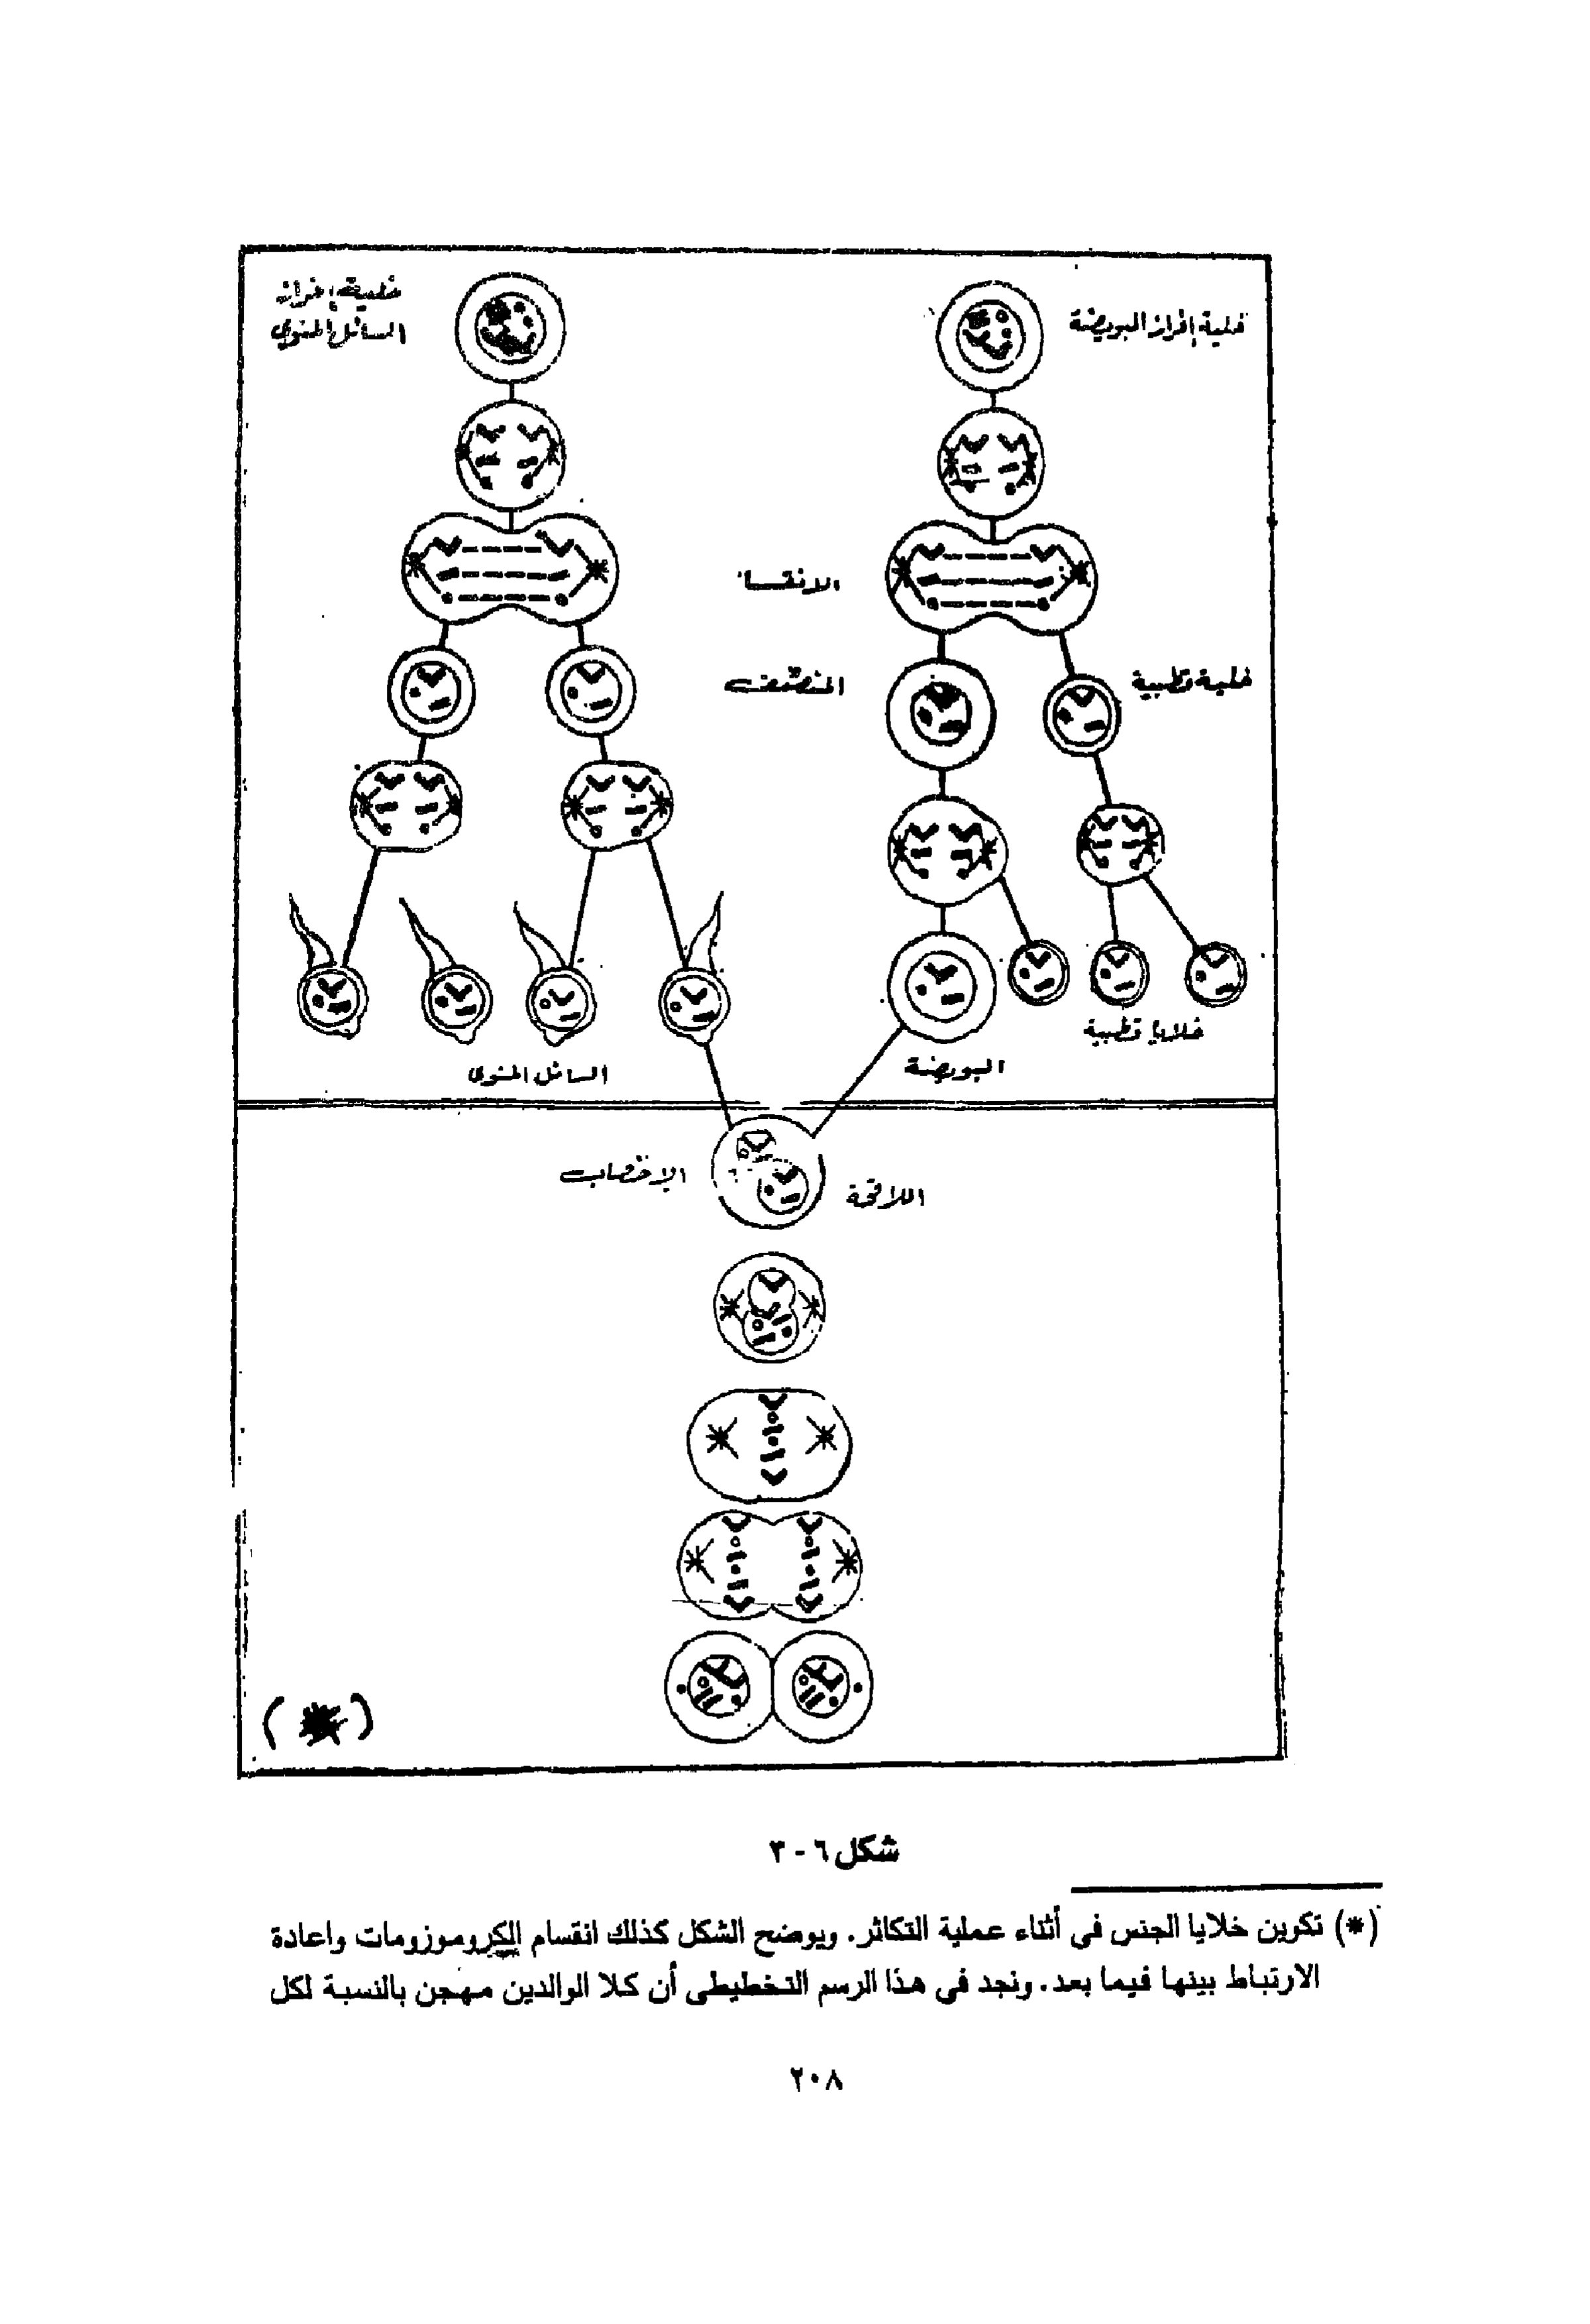 خلية إفراز البويضة
خلية إفراز
السائل المنوي
الانقسا
المنصف
خلية قطبية
خلايا قطبية
البويضة
السائل المنوى
الإخصاب
اللاقحة
(*)
شكل ٦ - ٣
(*) تكوين خلايا الجنس فى أثناء عملية التكاثر. ويوضح الشكل كذلك انقسام الكروموزومات واعادة
الارتباط بينها فيما بعد. ونجد فى هذا الرسم التخطيطى أن كلا الوالدين مهجن بالنسبة لكل
٢٠٨